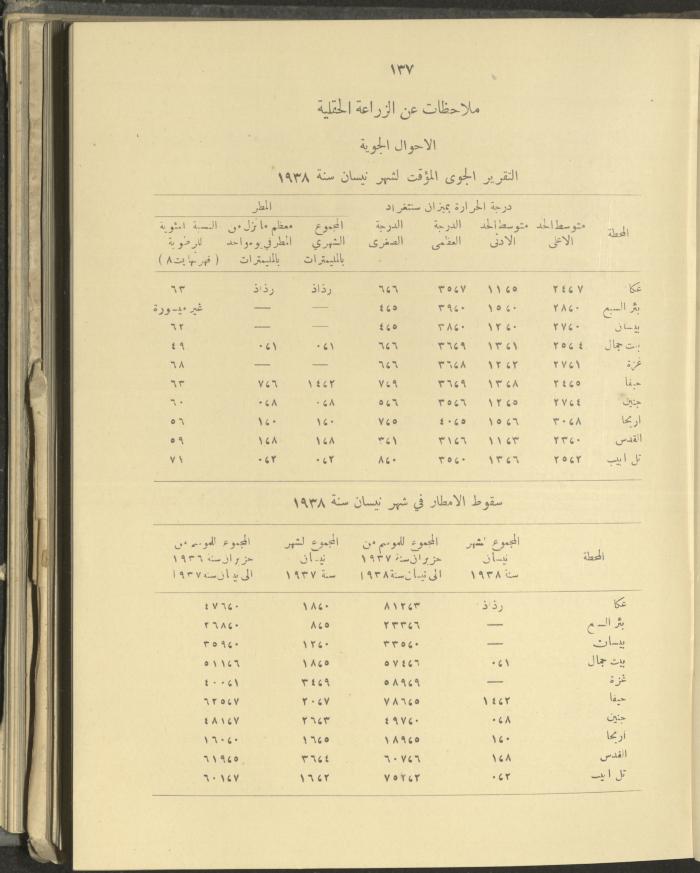 ١٣٧
ملاحظات عن الزراعة الحقلية
الاحوال الجوية
التقرير الجوى المؤقت لشهر نيسان سنة ١٩٣٨
درجة الحرارة بميزان سنتغراد المطر
المحطة متوسط الحد الاعلى متوسط الحد الادنى الدرجة العظمى الدرجة الصغرى المجموع الشهري بالمليمترات معظم ما نزل من المطر في يوم واحد بالمليمترات النسبة المئوية للرطوبة
عكا ٢٤٫٧ ١١٫٥ ٣٥٫٧ ٦٫٦ رذاذ رذاذ ٦٣
بئر السبع ٢٨٫٠ ١٥٫٠ ٣٩٫٠ ٤٫٥ — — غير ميسورة
بيسان ٢٧٫٠ ١٢٫٠ ٣٨٫٠ ٤٫٥ — — ٦٢
بيت جمال ٢٥٫٤ ١٣٫١ ٣٦٫٩ ٦٫٦ ٠٫١ ٠٫١ ٤٩
غزة ٢٧٫١ ١٢٫٢ ٣٦٫٨ ٦٫٦ — — ٦٨
حيفا ٢٤٫٥ ١٣٫٨ ٣٦٫٩ ٧٫٩ ١٤٫٢ ٧٫٦ ٦٣
جنين ٢٧٫٤ ١٢٫٥ ٣٥٫٦ ٥٫٦ ٠٫٨ ٠٫٨ ٦٠
اريحا ٣٠٫٨ ١٥٫٦ ٤٠٫٥ ٧٫٥ ١٫٠ ١٫٠ ٥٦
القدس ٢٣٫٠ ١١٫٣ ٣١٫٦ ٣٫١ ١٫٨ ١٫٨ ٥٩
تل ابيب ٢٥٫٢ ١٣٫٦ ٣٥٫٠ ٨٫٠ ٠٫٢ ٠٫٢ ٧١
سقوط الامطار في شهر نيسان سنة ١٩٣٨
المحطة المجموع لشهر نيسان سنة ١٩٣٨ المجموع للموسم من حزيران سنة ١٩٣٧ الى نيسان سنة ١٩٣٨ المجموع لشهر نيسان سنة ١٩٣٧ المجموع للموسم من حزيران سنة ١٩٣٦ الى نيسان سنة ١٩٣٧
عكا رذاذ ٨١٢٫٣ ١٨٫٠ ٤٧٦٫٠
بئر السبع — ٢٣٣٫٦ ٨٫٥ ٢٦٨٫٠
بيسان — ٣٣٥٫٠ ١٢٫٠ ٣٥٩٫٠
بيت جمال ٠٫١ ٥٧٤٫٦ ١٨٫٥ ٥١١٫٦
غزة — ٥٨٩٫٩ ٣٤٫٩ ٤٠٠٫١
حيفا ١٤٫٢ ٧٨٦٫٥ ٢٠٫٧ ٦٢٥٫٧
جنين ٠٫٨ ٤٩٧٫٠ ٢٦٫٣ ٤٨١٫٧
اريحا ١٫٠ ١٨٩٫٥ ١٦٫٥ ١٦٠٫٠
القدس ١٫٨ ٦٠٧٫٦ ٣٦٫٤ ٦١٩٫٥
تل ابيب ٠٫٢ ٧٥٢٫٢ ١٦٫٢ ٦٠١٫٧